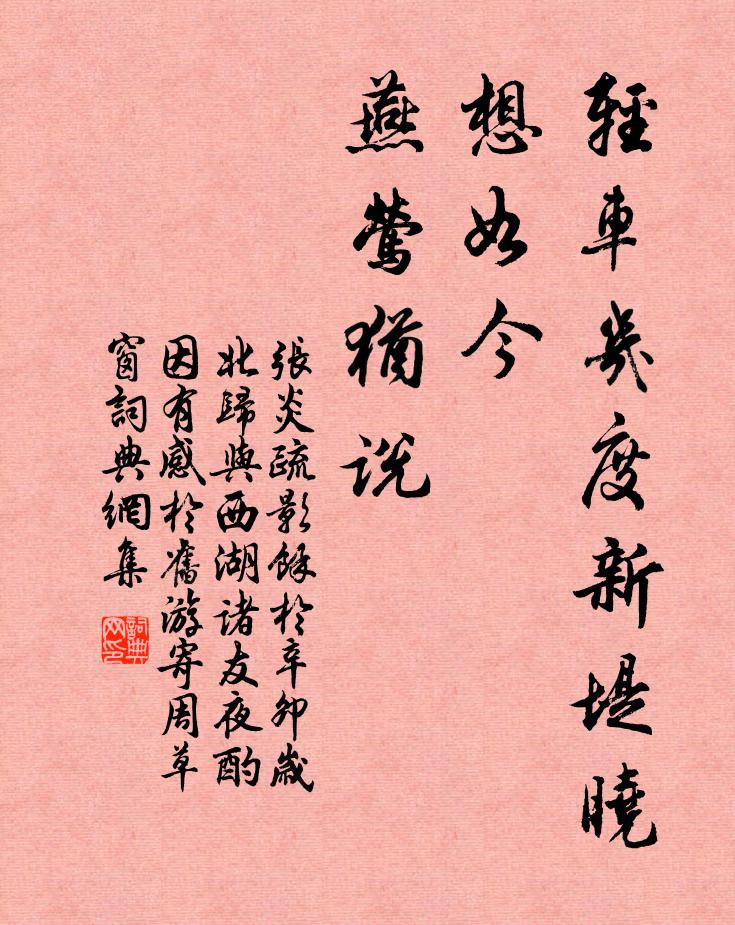 輕車幾度新堤曉
想如今
燕鶯猶説
張炎疏影餘於辛卯歲
北歸與西湖諸友夜酌
因有感於舊游寄周草
窗詞典網集
詞典网印